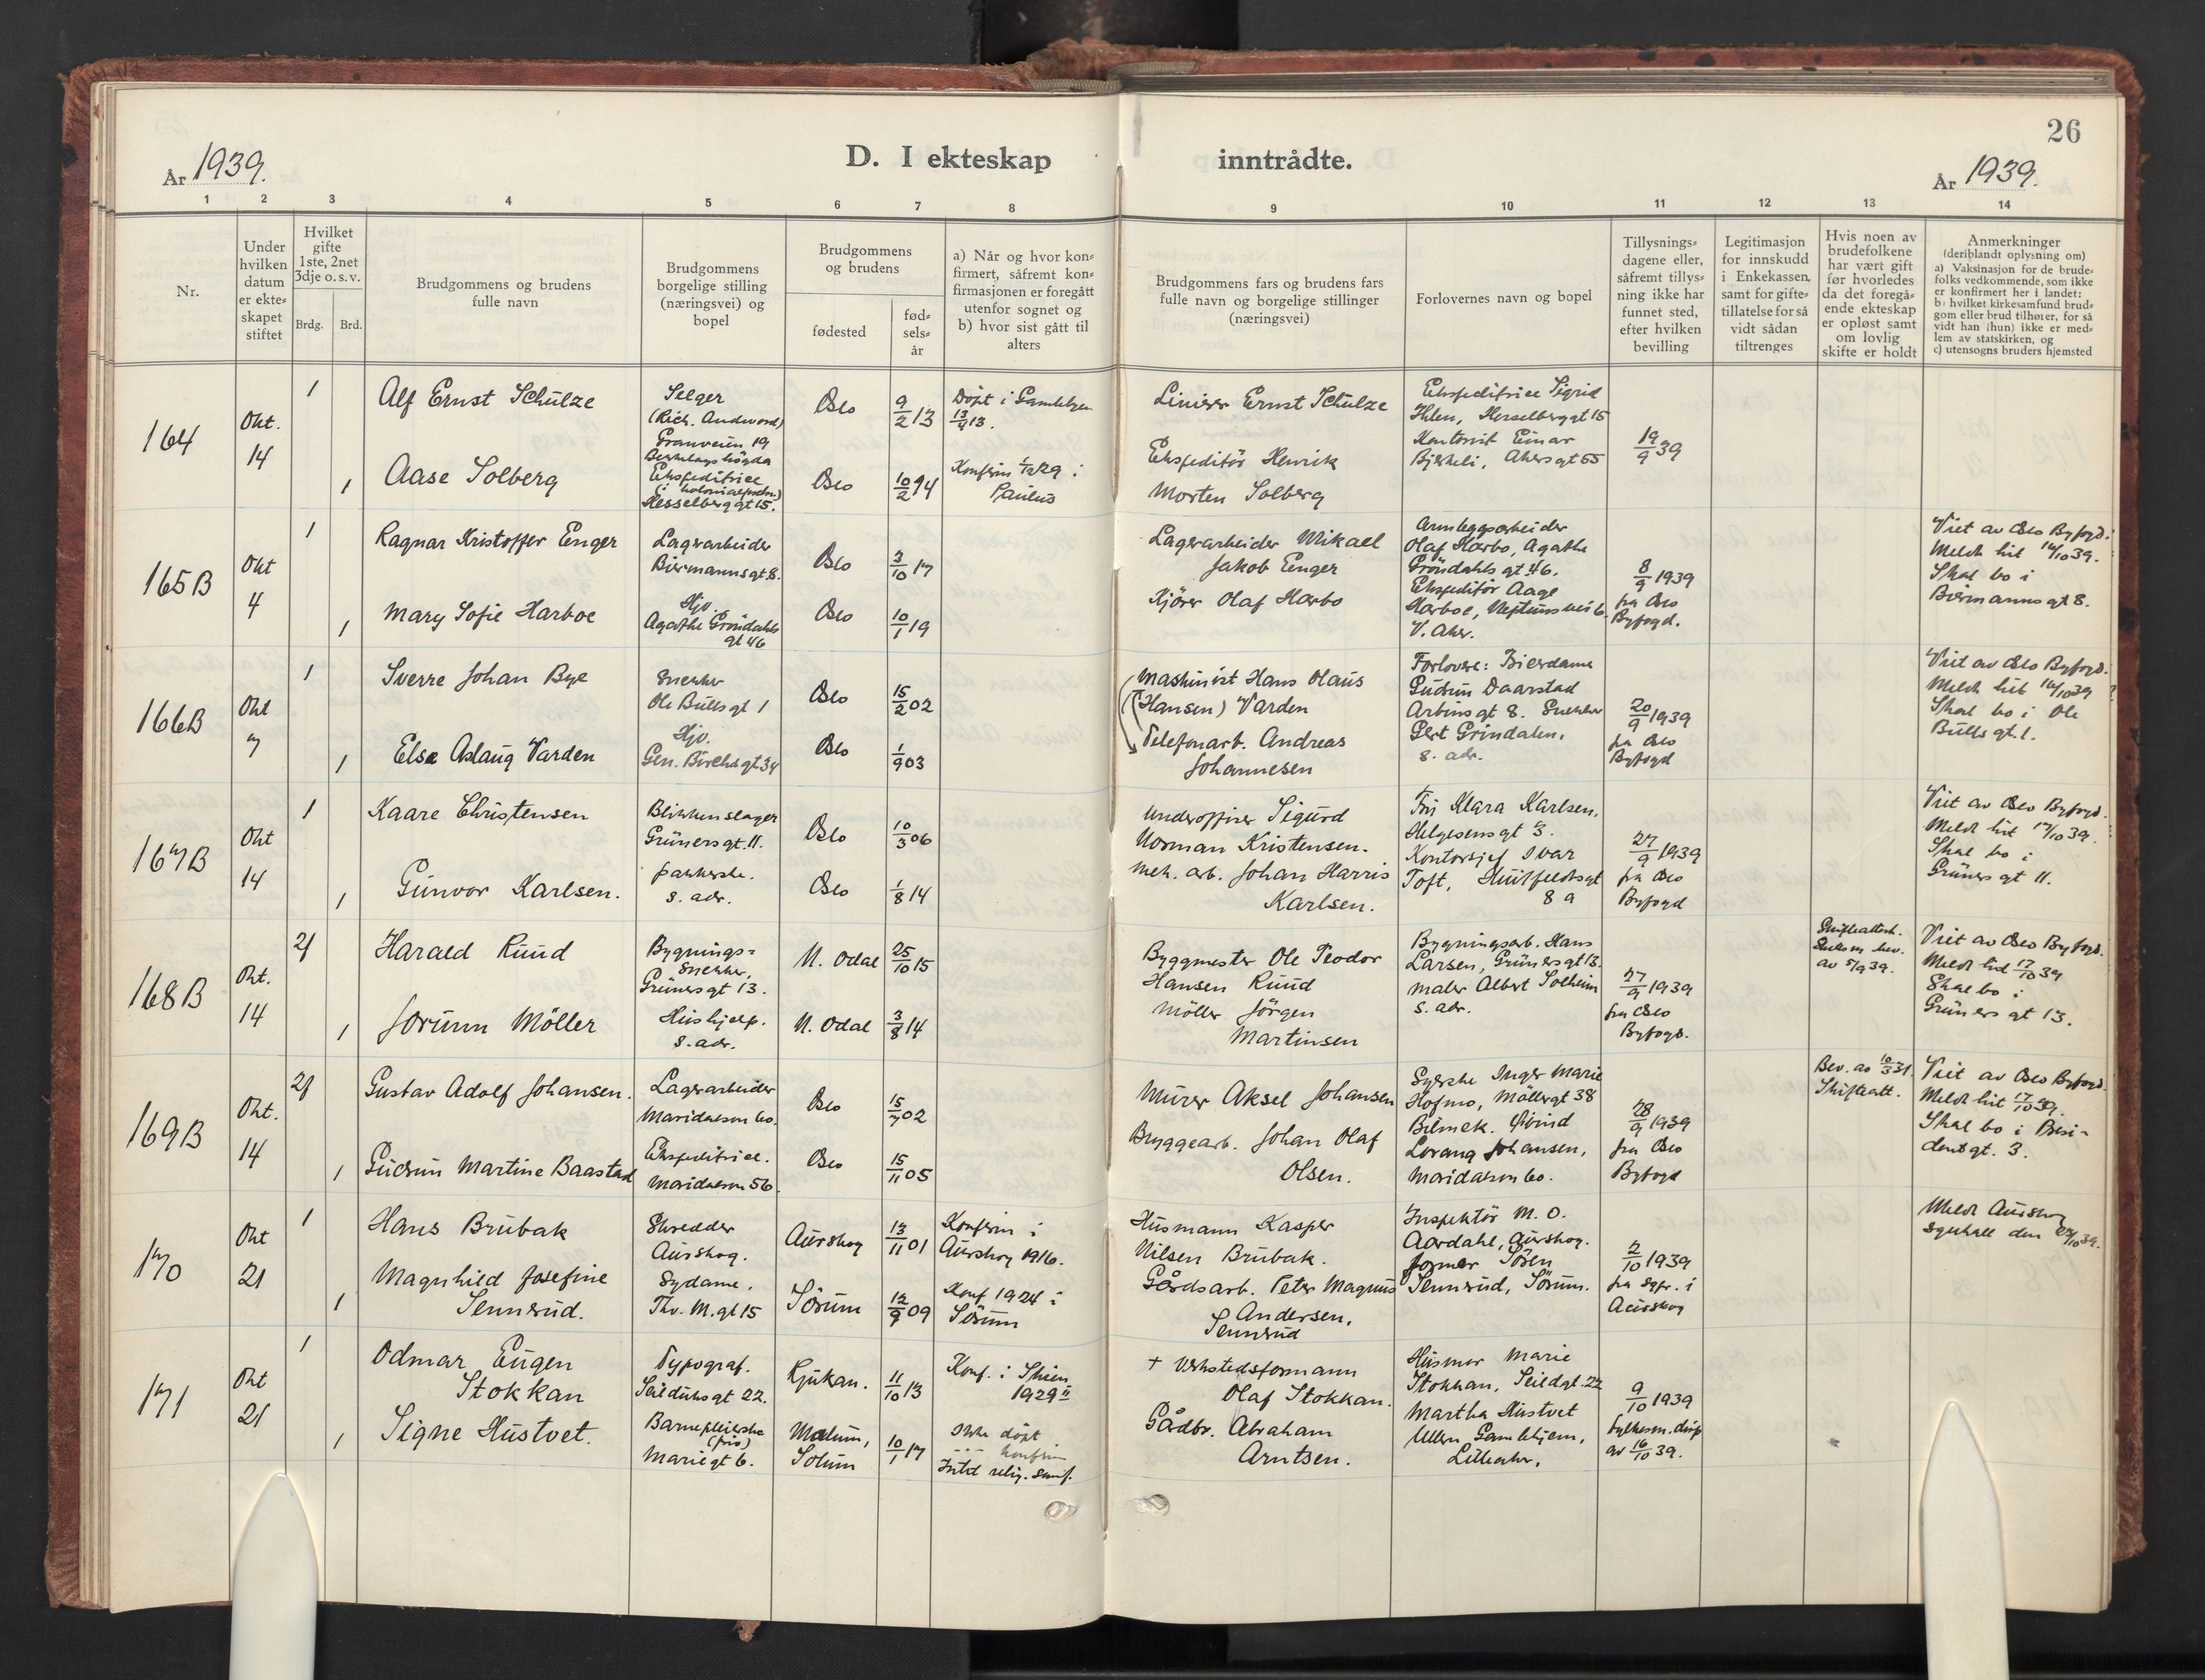 26
D. I ekteskap inntrådte.
År 1939.
År 1939.
1 2 3 4 5 6 7 8 9 10 11 12 13 14
Nr.
Under hvilken datum er ekteskapet stiftet
Hvilket gifte 1ste, 2net 3dje o. s. v.
Brdg. Brd.
Brudgommens og brudens fulle navn
Brudgommens borgelige stilling (næringsvei) og bopel
Brudgommens og brudens
fødested
fødselsår
a) Når og hvor konfirmert, såfremt konfirmasjonen er foregått utenfor sognet og
b) hvor sist gått til alters
Brudgommens fars og brudens fars fulle navn og borgelige stillinger (næringsvei)
Forlovernes navn og bopel
Tillysningsdagene eller, såfremt tillysning ikke har funnet sted, efter hvilken bevilling
Legitimasjon for innskudd i Enkekassen, samt for giftetillatelse for så vidt sådan tiltrenges
Hvis noen av brudefolkene har vært gift før hvorledes da det foregående ekteskap er opløst samt om lovlig skifte er holdt
Anmerkninger
(deriblandt oplysning om)
a) Vaksinasjon for de brudefolks vedkommende, som ikke er konfirmert her i landet:
b) hvilket kirkesamfund brudgom eller brud tilhører, for så vidt han (hun) ikke er medlem av statskirken, og
c) utensogns bruders hjemsted
164
Okt. 14
1
Alf Ernst Schulze
Selger
(Rich. Andvord)
Granveien 19
Oslo
9/2 13
Døpt i Gamlebyen
13/4 13.
Linierer Ernst Schulze
Ekspeditrice Sigrid
Ihlen, Hesselberggt 15
Kontorist Einar
Bjerkeli, Akersgt 55
19/9 39
1
Aase Solberg
Ekspeditrice
Hesselberggt 15.
Oslo
10/2 14
Konfirm 29 i
Paulus
Ekspeditör Henrik
Morten Solberg
165B
Okt 4
1
Ragnar Kristoffer Enger
Lagerarbeider
Biermannsgt 8.
Oslo
3/10 17
Lagerarbeider Mikael
Jakob Enger
Olaf Harbo, Agathe
Gröndahls gt. 46.
Ekspeditör Aage
Harboe, Neptuns vei 6
V. Aker.
8/9 1939
fra Oslo
Byfogd.
Viet av Oslo Byfogd.
Meldt hit 14/10 39.
Skal bo i
Biermannsgt 8.
1
Mary Sofie Harboe
Hjv.
Agathe Gröndahls
gt 46
Oslo
10/1 19
Kjörer Olaf Harbo
166B
Okt 7
1
Sverre Johan Bye
Snekker
Ole Bulls gt 1
Oslo
15/2 02
Maskinist Hans Olaus
(Hansen) Varden
Forlovere:
Gudrun Daarstad
Arbins gt 8. Snekker
Gert Grindalen,
s. adr.
20/9 1939
fra Oslo
Byfogd
Viet av Oslo Byfogd.
Meldt hit 14/10 39
Skal bo i Ole
Bulls gt. 1.
1
Else Aslaug Varden
Hjv.
Gen. Birchs gt 34
Oslo
1/9 03
Telefonarb. Andreas
Johannesen
167B
Okt 14
1
Kaare Christensen
Blikkenslager
Grünersgt. 11.
Oslo
10/3 06
Underoffiser Sigurd
Norman Kristensen.
Fru Klara Karlsen,
Helgesensgt 3.
Kontorsjef Ivar
Toft, Huitfeldtsgt
8 a
27/9 1939
fra Oslo
Byfogd
Viet av Oslo Byfogd.
Meldt hit 17/10 39.
Skal bo i
Grüners gt 11.
1
Gunvor Karlsen.
Pakkerske.
s. adr.
Oslo
1/8 14
Mek. arb. Johan Harris
Karlsen.
168B
Okt. 14
2f
Harald Ruud
Bygningssnekker,
Grünersgt 13.
N. Odal
25/10 15
Byggmester Ole Teodor
Hansen Ruud
Bygningsarb. Hans
Larsen, Grünersgt 13.
Maler Albert Solheim
s. adr.
27/9 1939
fra Oslo
Byfogd.
Skifteattest.
av 5/9 39.
Viet av Oslo Byfogd.
Meldt hit 17/10 39
Skal bo i
Grüners gt 13.
1
Jorunn Möller
Hushjelp.
s. adr.
N. Odal
3/8 14
Möller Jörgen
Martinsen
169B
Okt. 14
2f
Gustav Adolf Johansen.
Lagerarbeider
Maridalsvn 60.
Oslo
15/7 02
Murer Aksel Johansen
Syerske Inger Marie
Hofmo, Möllergt 38
Bilmek. Øivind
Lorang Johansen,
Maridalsvn 60.
28/9 1939
fra Oslo
Byfogd
Bev. av 10/3 31.
Skifteatt.
Viet av Oslo Byfogd.
Meldt hit 17/10 39.
Skal bo i Presidentgt. 3.
1
Gudrun Martine Baastad
Ekspeditrice.
Maridalsvn 56.
Oslo
15/11 05
Bryggearb. Johan Olaf
Olsen.
170
Okt 21
1
Hans Brubak
Skredder
Aurskog.
Aurskog
13/11 01
Konfirm i
Aurskog 1916.
Husmann Kasper
Nilsen Brubak.
Inspektör M. O.
Aardahl, Aurskog.
Former Sören
Sennerud, Sörum.
2/10 1939
fra sgpr. i
Aurskog
Meldt Aurskog
sgnkall den 23/10 39.
1
Magnhild Josefine
Sennerud.
Sydame.
Thv. M. gt 15
Sörum
12/9 09
Konf 1924 i
Sörum
Gårdsarb. Peter Magnus
Andersen,
Sennerud
171
Okt 21
1
Odmar Eugen
Stokkan
Typograf.
Seilduksgt 22.
Rjukan.
11/10 13
Konf. i Skien
1929
+ Verkstedsformann
Olaf Stokkan.
Husmor Marie
Stokkan, Seildgt. 22
Martha Hustvet
Ullern Gamlehjem,
Lilleaker.
9/10 1939
fylkesm. disp
av 16/10 39.
1
Signe Hustvet.
Barnepleierske
Mariegt 6.
Melum,
Solum
10/1 17
Ikke döpt
" " " konfirm
Intet relig. samf.
Gårdbr. Abraham
Arntsen.